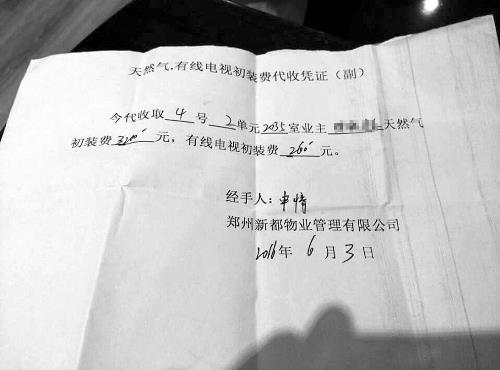 天然气.有线电视初装费代收凭证（副）
今代收取 4 号 2 单元2035室业主 天然气
初装费 3200 元，有线电视初装费 260 元。
经手人：申情
郑州新都物业管理有限公司
2016年 6 月 3 日